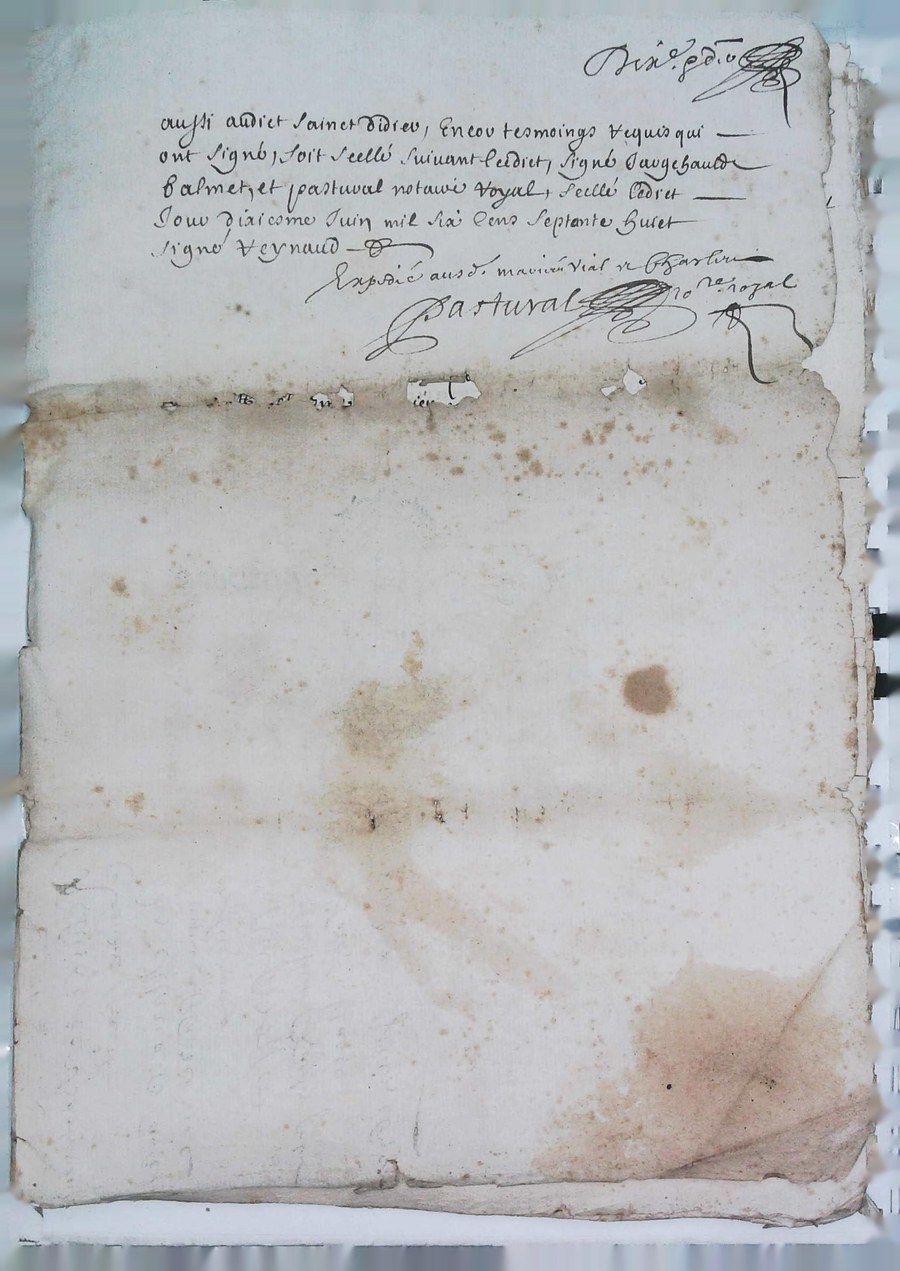 aussi audict Sainct Didier, Encor tesmoings requis qui
ont signé, soit scellé suivant l'edict, signé
balmet, et pastural notaire royal, scellé ledict
Jour dixiesme Juin mil six Cens Septante huict
signé Reynaud
Expedié ausd. mariés Vial et
Pastural no.re royal